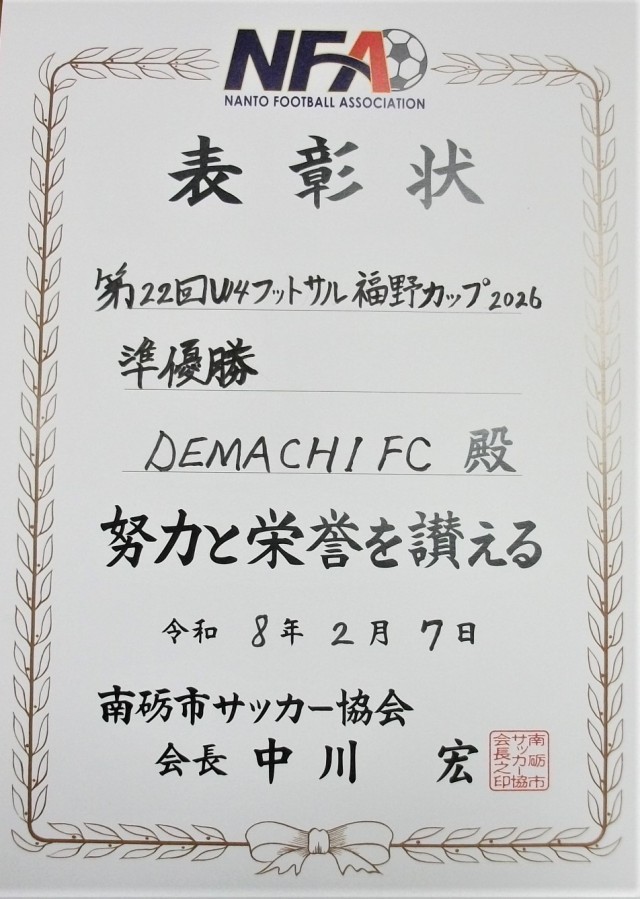 NFA
NANTO FOOTBALL ASSOCIATION
表彰状
第22回U14フットサル福野カップ2026
準優勝
DEMACHI FC 殿
努力と栄誉を讃える
令和 8年 2月 7日
南砺市サッカー協会
会長 中川 宏
南砺市
サッカー協
会長之印